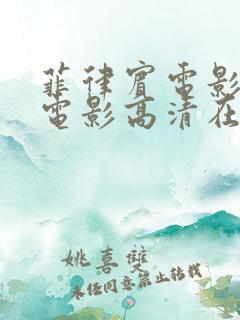 菲律宾电影
电影高清在
姚喜双
未经同意禁止转载